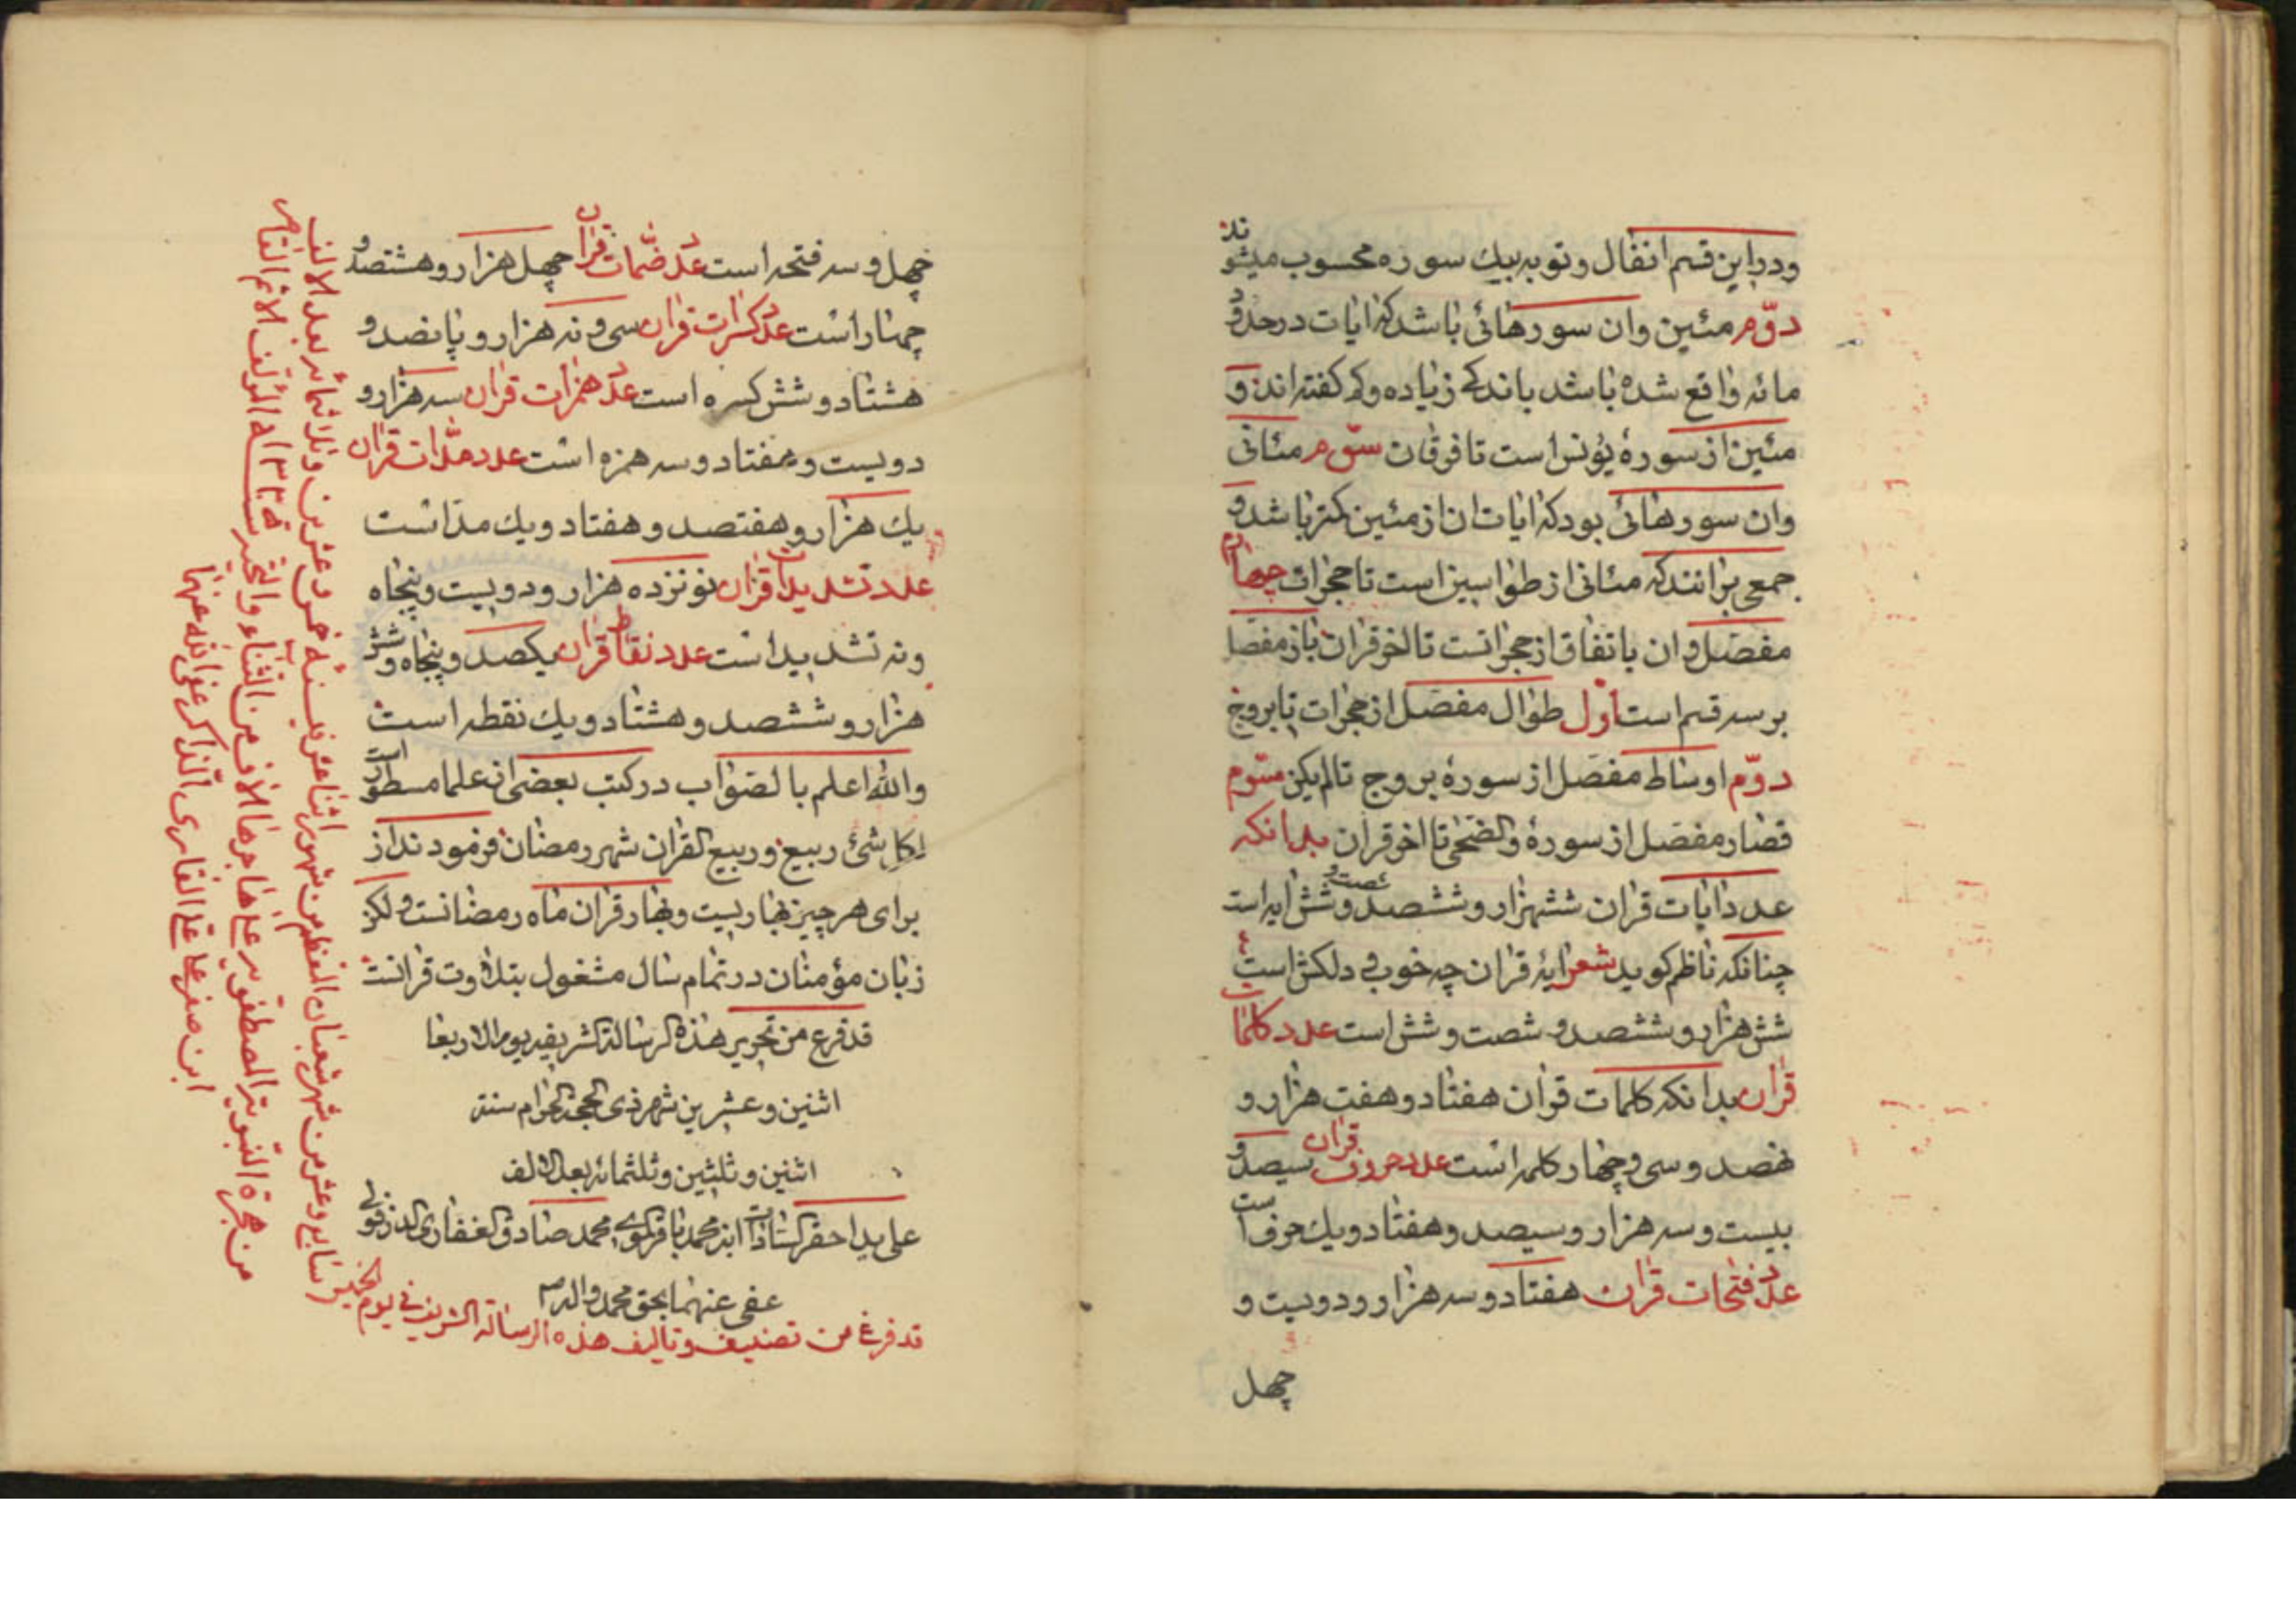 ودر این قسم انفال و توبه بیك سوره محسوب میشوند
دوّم مئین وان سورهائی باشد که ایات در حدود
مائه واقع شده باشد باندکی زیاده وکم کفته اند و
مئین از سورهٔ یونس است تا فرقان سوّم مثانی
وان سورهائی بود که ایات ان از مئین کمتر باشد و
جمعی برانند که مثانی از طواسین است تا حجرات چهارم
مفصّل وان باتفاق از حجراتست تا اخر قران باز مفصّل
بر سه قسم است اوّل طوال مفصّل از حجرات تا بروج
دوّم اوساط مفصّل از سورهٔ بروج تا لم یکن سوّم
قصار مفصّل از سورهٔ والضّحی تا اخر قران بدانکه
عدد ایات قران ششهزار و ششصد و شصت و شش ایه است
چنانکه ناظم کوید شعر ایهٔ قران چه خوب و دلکش است
شش هزار و ششصد و شصت و شش است عدد کلمات
قران بدانکه کلمات قران هفتاد و هفت هزار و
نهصد و سی و چهار کلمه است عدد حروف قران سیصد و
بیست و سه هزار و سیصد و هفتاد و یك حرف است
عدد فتحات قران هفتاد و سه هزار و دویست و
چهل
چهل و سه فتحه است عدد ضمّات قران چهل هزار و هشتصد و
چهار است عدد کسرات قران سی و نه هزار و پانصد و
هشتاد و شش کسره است عدد همزات قران سه هزار و
دویست و هفتاد و سه همزه است عدد مدّات قران
یك هزار و هفتصد و هفتاد و یك مدّ است
عدد تشدیدات قران نونزده هزار و دویست و پنجاه
و نه تشدید است عدد نقاط قران یکصد و پنجاه و شش
هزار و ششصد و هشتاد و یك نقطه است
والله اعلم بالصّواب در کتب بعضی از علما مسطور است
لکل شئ ربیع و ربیع القران شهر رمضان فرمودند از
برای هر چیز بهاریست و بهار قران ماه رمضانست ولکن
زبان مؤمنان در تمام سال مشغول بتلاوت قرانست
قد فرغ من تحریر هذه الرسالة الشریفه یوم الاربعا
اثنین و عشرین شهر ذی الحجة الحرام سنة
اثنین و ثلثین و ثلثمائه بعد الالف
علی ید احقر السّادات ابن محمد باقر الموسوی محمد صادق الغفاری الدزفولی
عفی عنهما بحق محمد واله
قد فرغ من تصنیف و تالیف هذه الرسالة الشریفة فی یوم الخمیس
سابع و عشر من شهر شعبان المعظم من شهور اثنا عشر فی سنة خمس و عشرین و ثلاثمائه بعد الالف
من هجرة النّبویة المصطفویه علی هاجرها الاف من الثّناء والتّحیّه سنه ١٣٢٥ انا المؤلّف الاثم القاصر
ابن صفر علی القاری الذاکر عفی الله عنهما